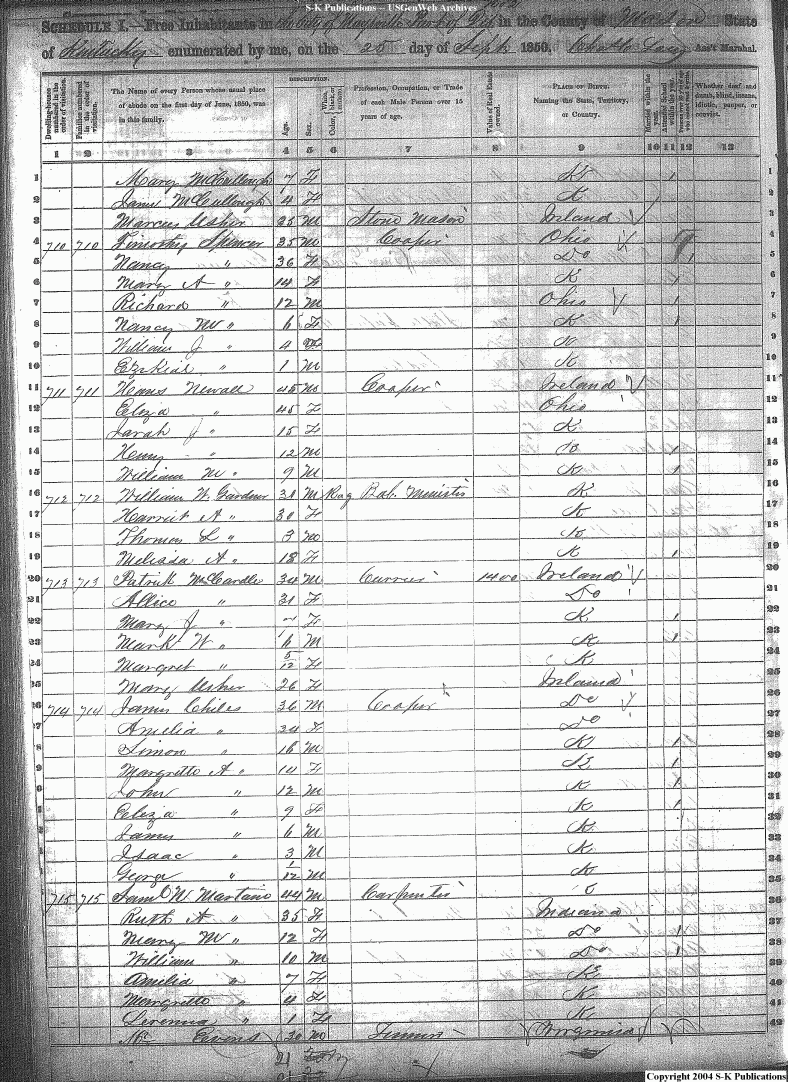 S-K Publications – USGenWeb Archives
SCHEDULE I.—Free Inhabitants in the City of in the County of State
of Kentucky enumerated by me, on the 25 day of Sept 1850. Ass't Marshal.
DESCRIPTION.
Dwelling-houses numbered in the order of visitation.
Families numbered in the order of visitation.
The Name of every Person whose usual place of abode on the first day of June, 1850, was in this family.
Age.
Sex.
Profession, Occupation, or Trade of each Male Person over 15 years of age.
Value of Real Estate owned.
PLACE OF BIRTH. Naming the State, Territory, or Country.
Whether deaf and dumb, blind, insane, idiotic, pauper, or convict.
1 2 3 4 5 6 7 8 9 10 11 12 13
1 Mary McCullough 7 F Ky 1
2 James McCullough 4 F K
3 Marcus Usher 25 M Stone Mason Ireland
4 710 710 Timothy Spencer 35 M Cooper Ohio
5 Nancy " 36 F Do
6 Mary A " 14 F K 1
7 Richard " 12 M Ohio 1
8 Nancy M " 6 F K 1
9 William J " 4 K
10 Ezekiel " 1 M K
11 711 711 Newall 45 M Cooper Ireland
12 Eliza " 45 F Ohio
13 Sarah J " 15 F K
14 Henry " 12 M K 1
15 William M " 9 M K 1
16 712 712 William W. Gardner M K
17 Harriet A " 30 F K
18 Thomas L " 3 M K
19 Melissa A " 18 F K 1
20 713 713 Patrick McCardle 34 M Currier 1400 Ireland
21 Allice " 31 F Do
22 Mary J " 7 F K 1
23 Mark W " 6 M K 1
24 Margret " 5/12 F K
25 Mary Usher 26 F Ireland
26 714 714 James Chiles 36 M Cooper Do
27 Amelia " 34 F Do
28 Simon " 16 M K 1
29 Margrette A " 14 F K 1
30 John " 12 M K 1
31 Eliza " 9 F K 1
32 James " 6 M K
33 Isaac " 3 M K
34 George " 1/12 M K
35 715 715 Saml W Martain 44 M Carpenter
36 Ruth A " 35 F Indiana
37 Mary M " 12 F Do 1
38 William " 10 M Do 1
39 Amilia " 7 F K
40 Margrette " 4 F K
41 " 1 F K
42 Evens 30 M Virginia
21
Copyright 2004 S-K Publications